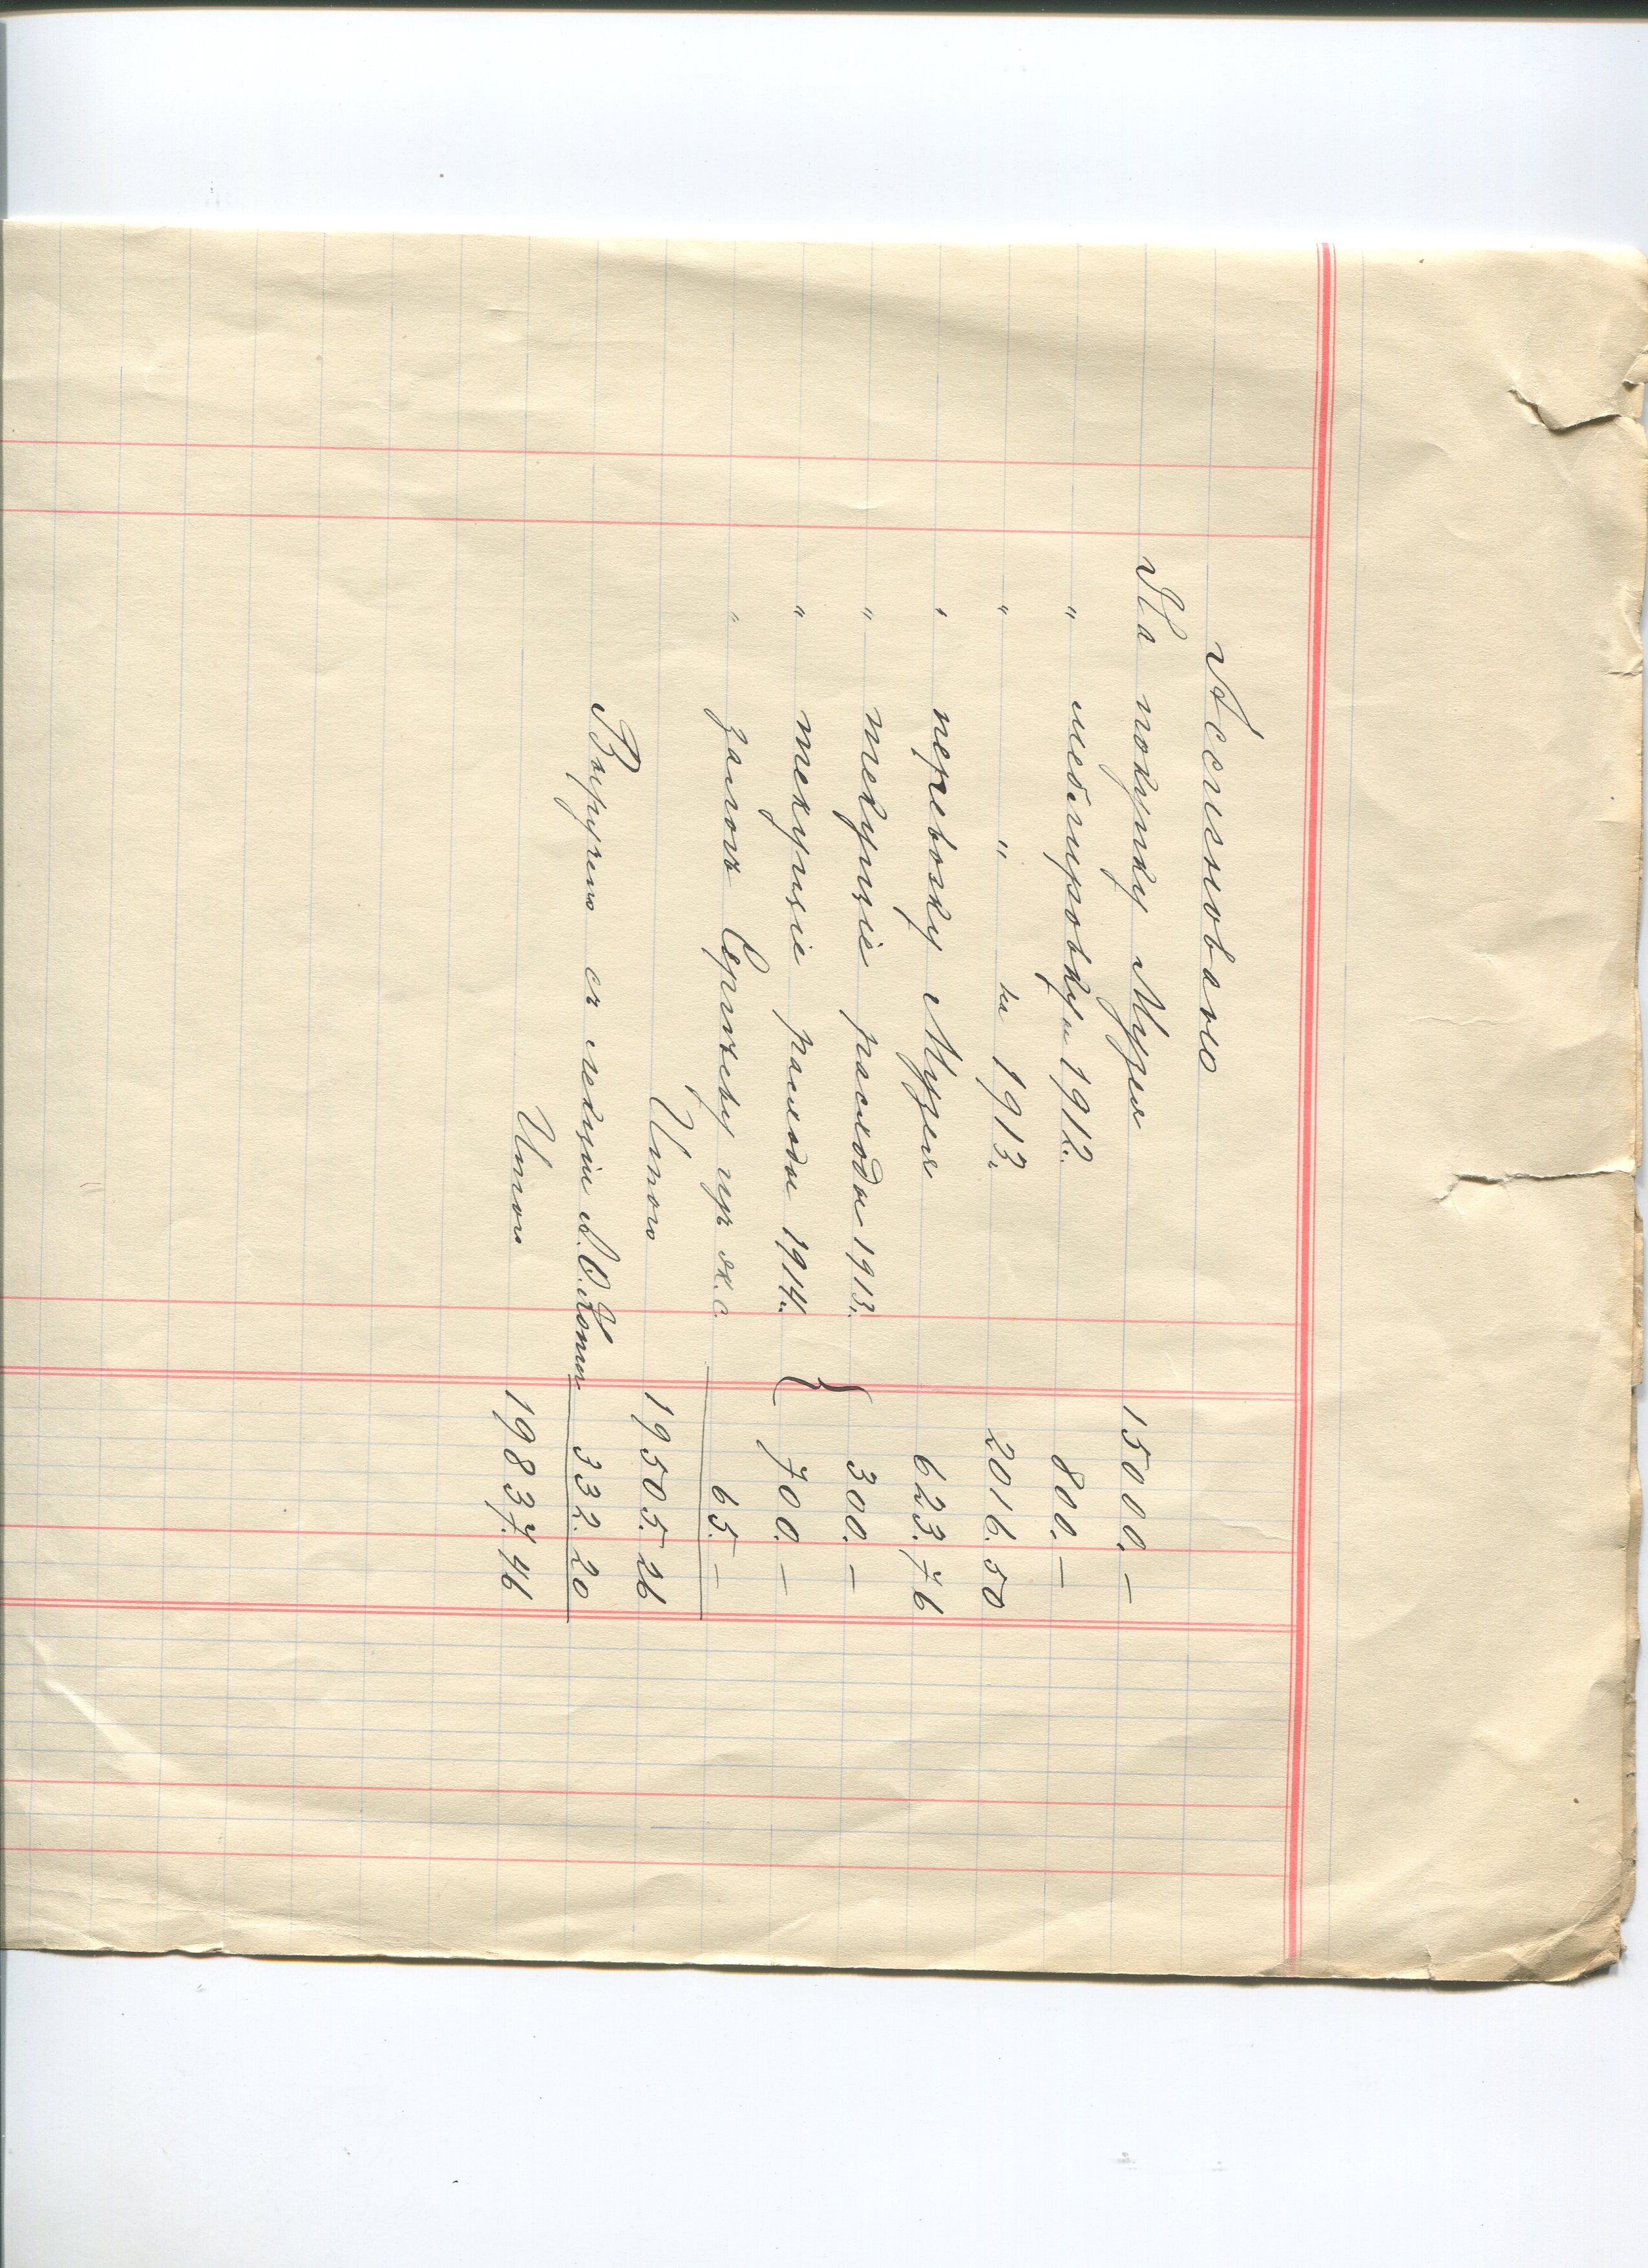 Ассигновано
На покупку Музея 15000.–
" меблировку в 1912. 800.–
" " на 1913. 2016.50
" перевозку Музея 623.76
" текущие расходы 1913. } 300.–
" текущие расходы 1914. 700.–
" залог 65.–
Итого 19505.26
Выручено с лекции 332.20
Итого 19837.46